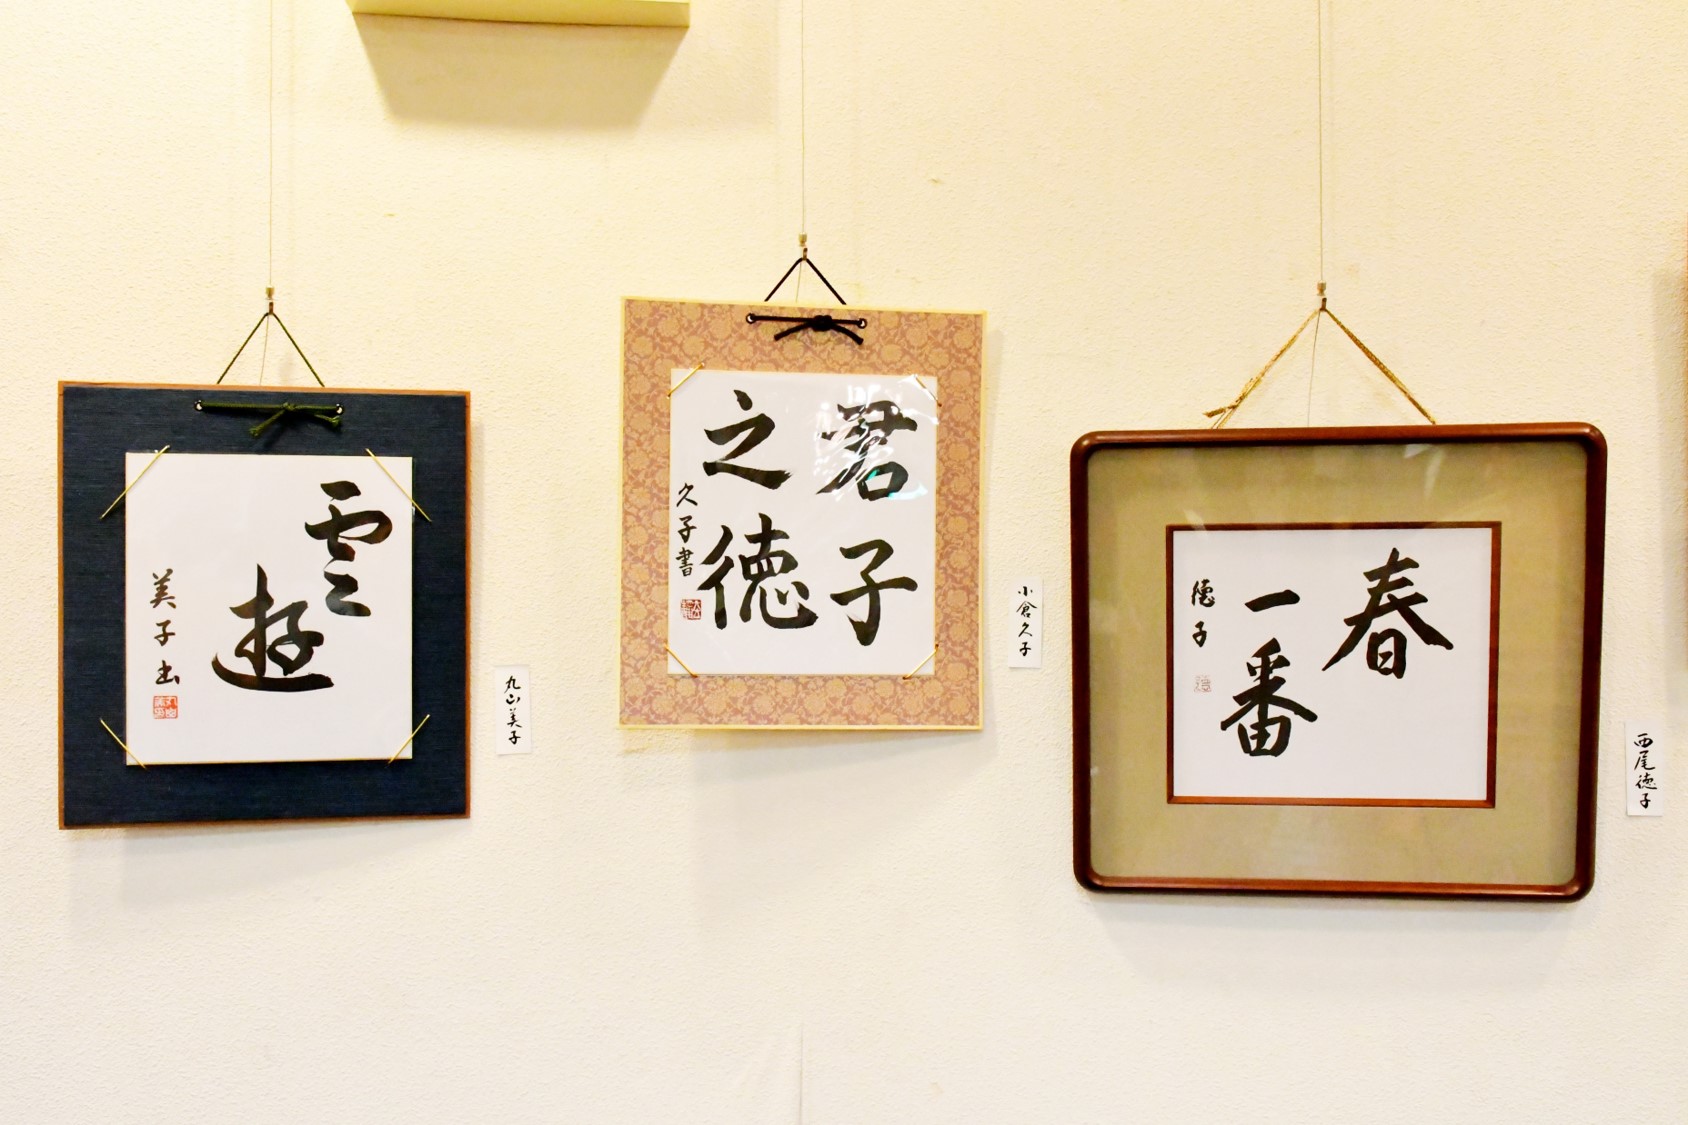 雲
遊
美子書
丸山美子
君子
之徳
久子書
小倉久子
春
一番
徳子
西尾徳子